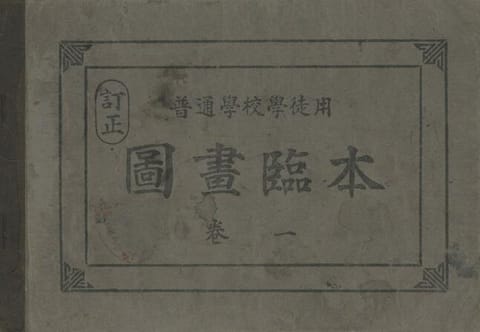 訂正
普通學校學徒用
圖畫臨本
卷一